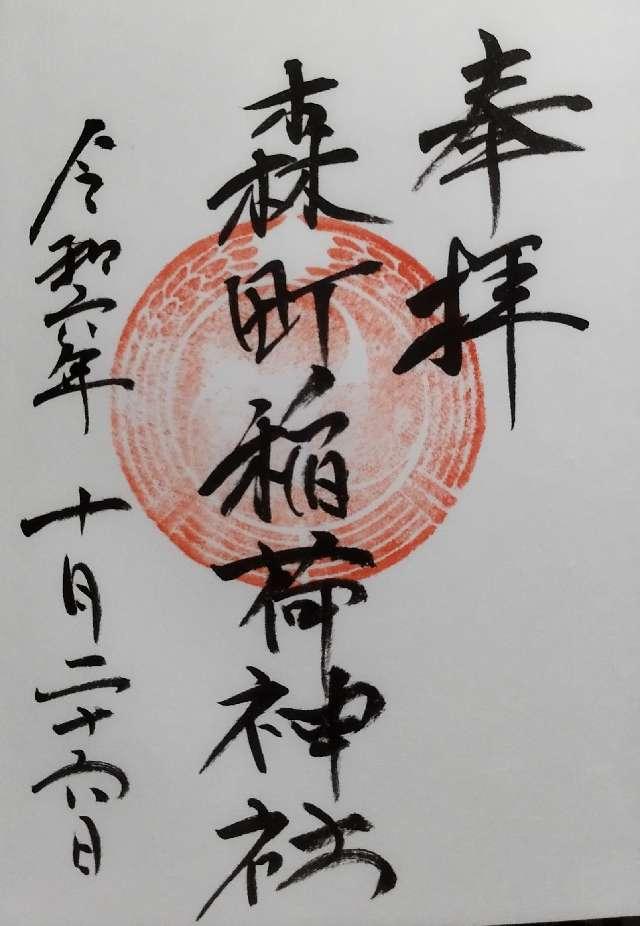 奉拝
森町稲荷神社
令和六年十月二十六日